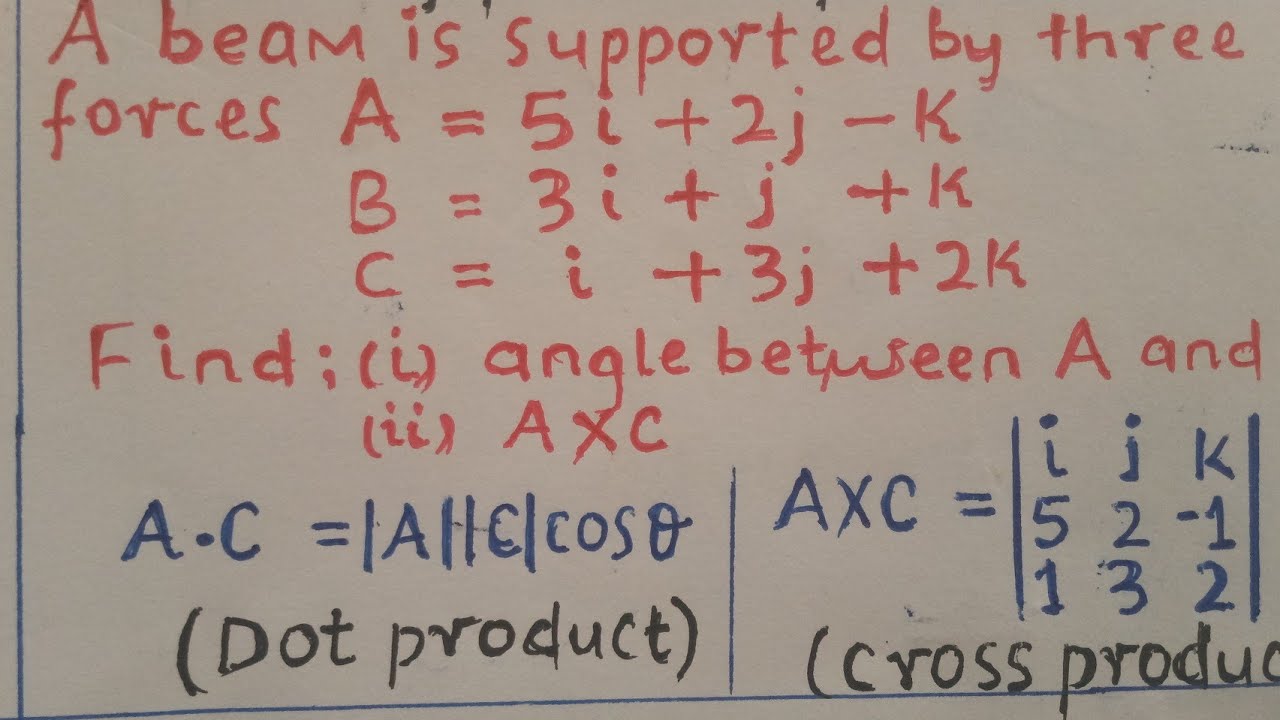 A beam is supported by three
forces A = 5i + 2j - K
B = 3i + j + K
C = i + 3j + 2K
Find; (i) angle between A and
(ii) A X C
A.C = |A||C|cosθ
(Dot product)
AXC = |i j K|
|5 2 -1|
|1 3 2|
(Cross produc